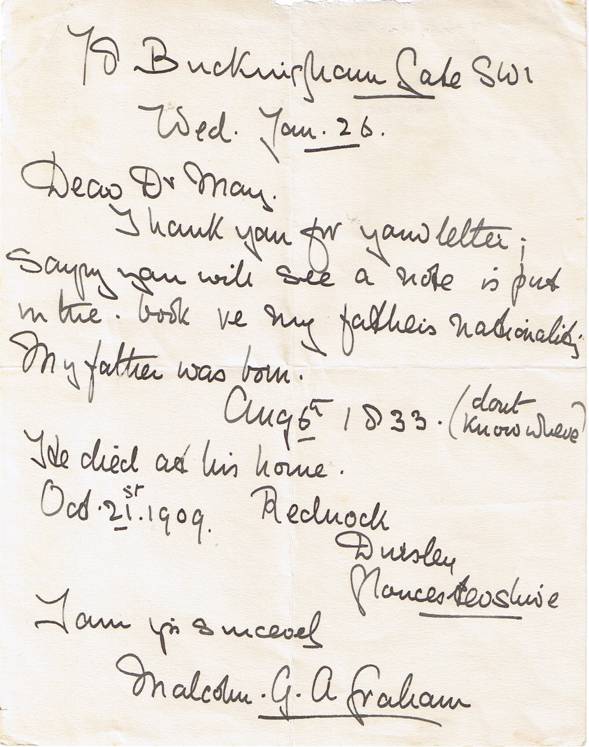 78 Buckingham Gate SW1
Wed. Jan. 26.
Dear Dr May.
Thank you for your letter;
saying you will see a note is put
in the. book re my father's nationality
My father was born.
Aug 6th 1833. (dont
know where)
He died at his home.
Oct. 21.st 1909. Rednock
Dursley
Gloucestershire
I am yrs sincerely
Malcolm. G. A Graham